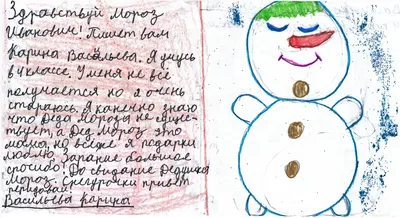 Здравствуй Мороз
Иванович! Пишет вам
Карина Васильева. Я учусь
в 4 классе. У меня не всё
получается но я очень
стараюсь. Я канечно знаю
что Деда Мороза не суще-
ствует, а Дед Мороз это
мама, но всё же я подарки
люблю. Зарание большое
спосибо! До свидание Дедушка
Мороз. Снегурочки привет
передовай!
Васильева Карина